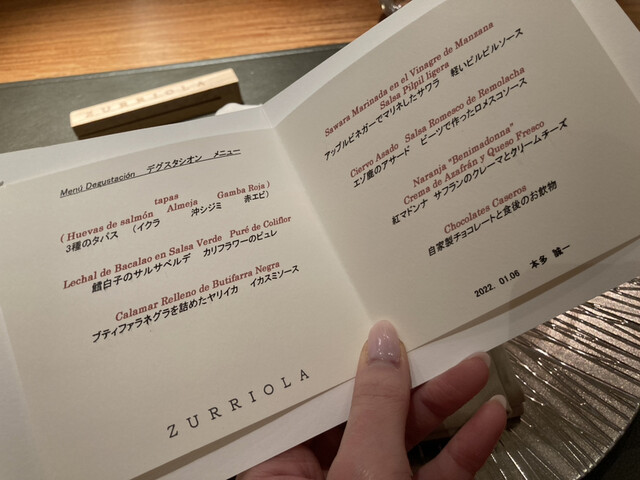 ZURRIOLA
Menú Degustación デグスタシオン メニュー
tapas
( Huevas de salmón Almeja Gamba Roja )
3種のタパス (イクラ 沖シジミ 赤エビ)
Lechal de Bacalao en Salsa Verde Puré de Coliflor
鱈白子のサルサベルデ カリフラワーのピュレ
Calamar Relleno de Butifarra Negra
ブティファラネグラを詰めたヤリイカ イカスミソース
ZURRIOLA
Sawara Marinada en el Vinagre de Manzana
Salsa Pilpil ligera
アップルビネガーでマリネしたサワラ 軽いピルピルソース
Ciervo Asado Salsa Romesco de Remolacha
エゾ鹿のアサード ビーツで作ったロメスコソース
Naranja "Benimadonna"
Crema de Azafrán y Queso Fresco
紅マドンナ サフランのクレーマとクリームチーズ
Chocolates Caseros
自家製チョコレートと食後のお飲物
2022. 01.06 本多 誠一